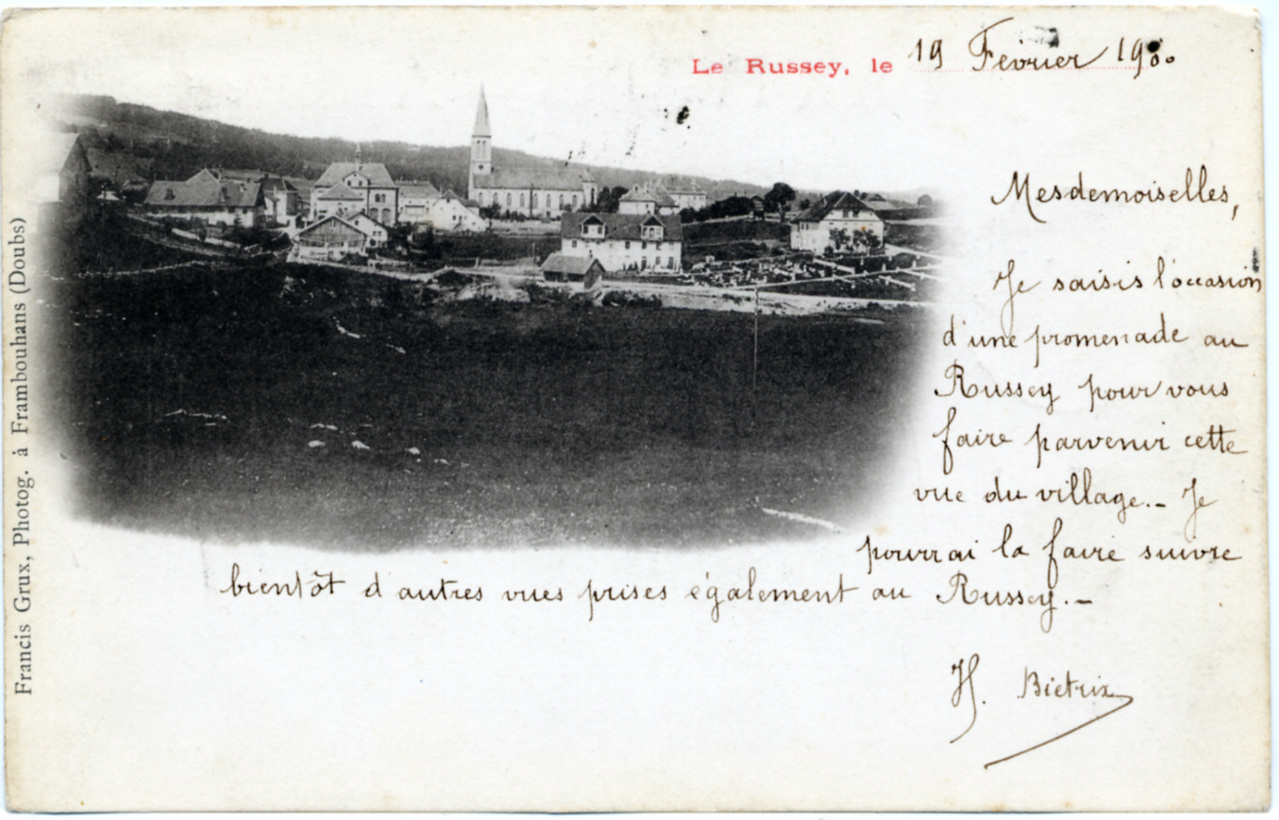 Le Russey, le 19 Février 1900
Mesdemoiselles,
Je saisis l'occasion
d'une promenade au
Russey pour vous
faire parvenir cette
vue du village._ Je
pourrai la faire suivre
bientôt d'autres vues prises également au Russey._
H. Bietrix
Francis Grux, Photog. à Frambouhans (Doubs)